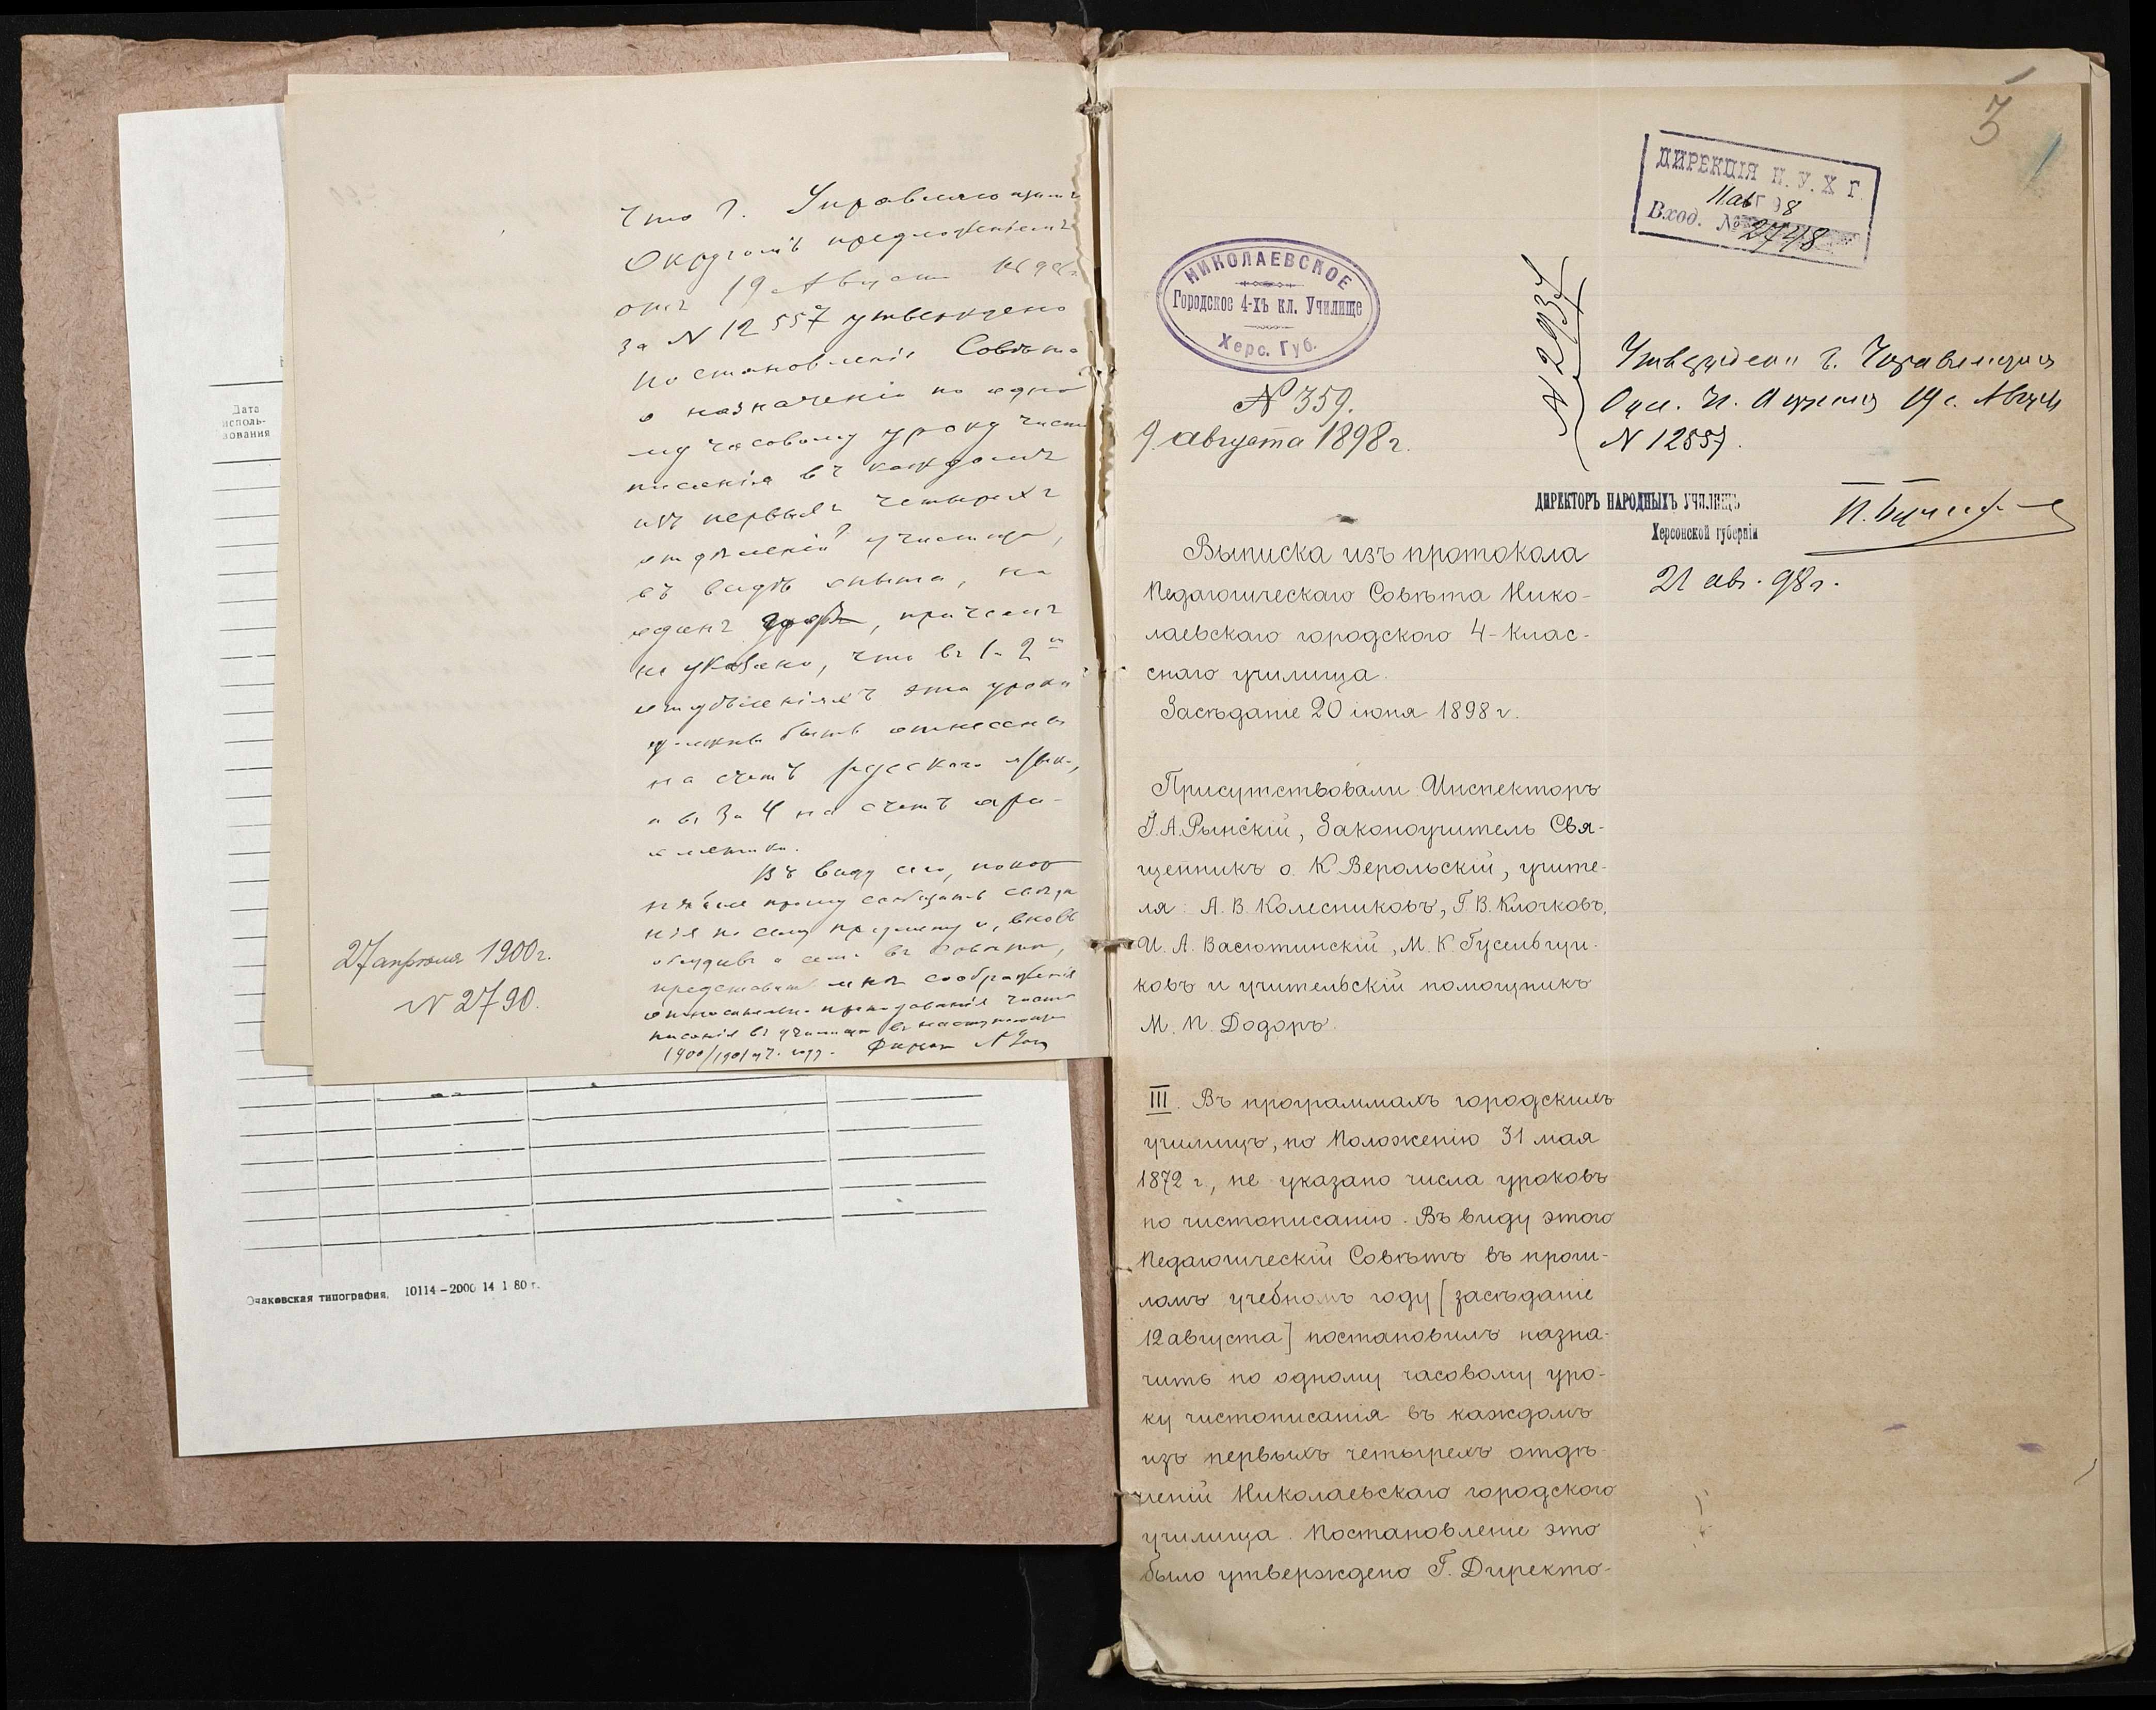 Дата
исполь-
зования
Очаковская типография. 10114–2000 14 1 80 г.
что г. Управляющимъ
Округомъ предложеніемъ
отъ 19 Августа 1898 г.
за N 12557 утверждено
постановленіе Совѣта
о назначеніи по одно-
му часовому уроку чисто
писанія въ каждомъ
изъ первыхъ четырехъ
отдѣленій училища,
въ видѣ опыта, на
одинъ годъ, причемъ
не указано, что въ 1 и 2
отдѣленіяхъ эти уроки
должны быть отнесены
на счетъ русского языка,
а въ 3 и 4 на счетъ ари-
метики.
Въ виду сего, покор
нѣйше прошу сообщить свѣдѣ
нія по сему предмету и, вновь
обсудивъ о семъ въ Совѣтѣ,
представить мнѣ соображенія
относительно преподаванія чисто
писанія въ училищѣ въ наступающемъ
1900/1901 уч. году.
27 апрѣля 1900 г.
N 2790.
3
ДИРЕКЦІЯ Н. У. Х. Г.
11 авг 98
Вход. № 2748
НИКОЛАЕВСКОЕ
Городское 4-хъ кл. Училище
Херс. Губ.
№ 359.
9 августа 1898 г.
N 2937
Утверждено г. Управляющимъ
Одес. У. Округомъ 19 с. Августа
N 12557.
ДИРЕКТОРЪ НАРОДНЫХЪ УЧИЛИЩЪ
Херсонской губерніи
21 ав. 98 г.
Выписка изъ протокола
Педагогическаго Совѣта Нико-
лаевскаго городского 4-клас-
снаго училища.
Засѣданіе 20 іюня 1898 г.
Присутствовали: Инспекторъ
І. А. Рынскій, Законоучитель Свя-
щенникъ о. К. Верольскій, учите-
ля: А. В. Колесниковъ, Г. В. Клочковъ,
И. А. Васютинскій, М. К. Гусельщи-
ковъ и учительскій помощникъ
М. П. Додоръ.
III. Въ программахъ городскихъ
училищъ, по Положенію 31 мая
1872 г., не указано числа уроковъ
по чистописанію. Въ виду этого
Педагогическій Совѣтъ въ прош-
ломъ учебномъ году [засѣданіе
12 августа] постановилъ назна-
чить по одному часовому уро-
ку чистописанія въ каждомъ
изъ первыхъ четырехъ отдѣ-
леній Николаевскаго городского
училища. Постановленіе это
было утверждено Г. Директо-